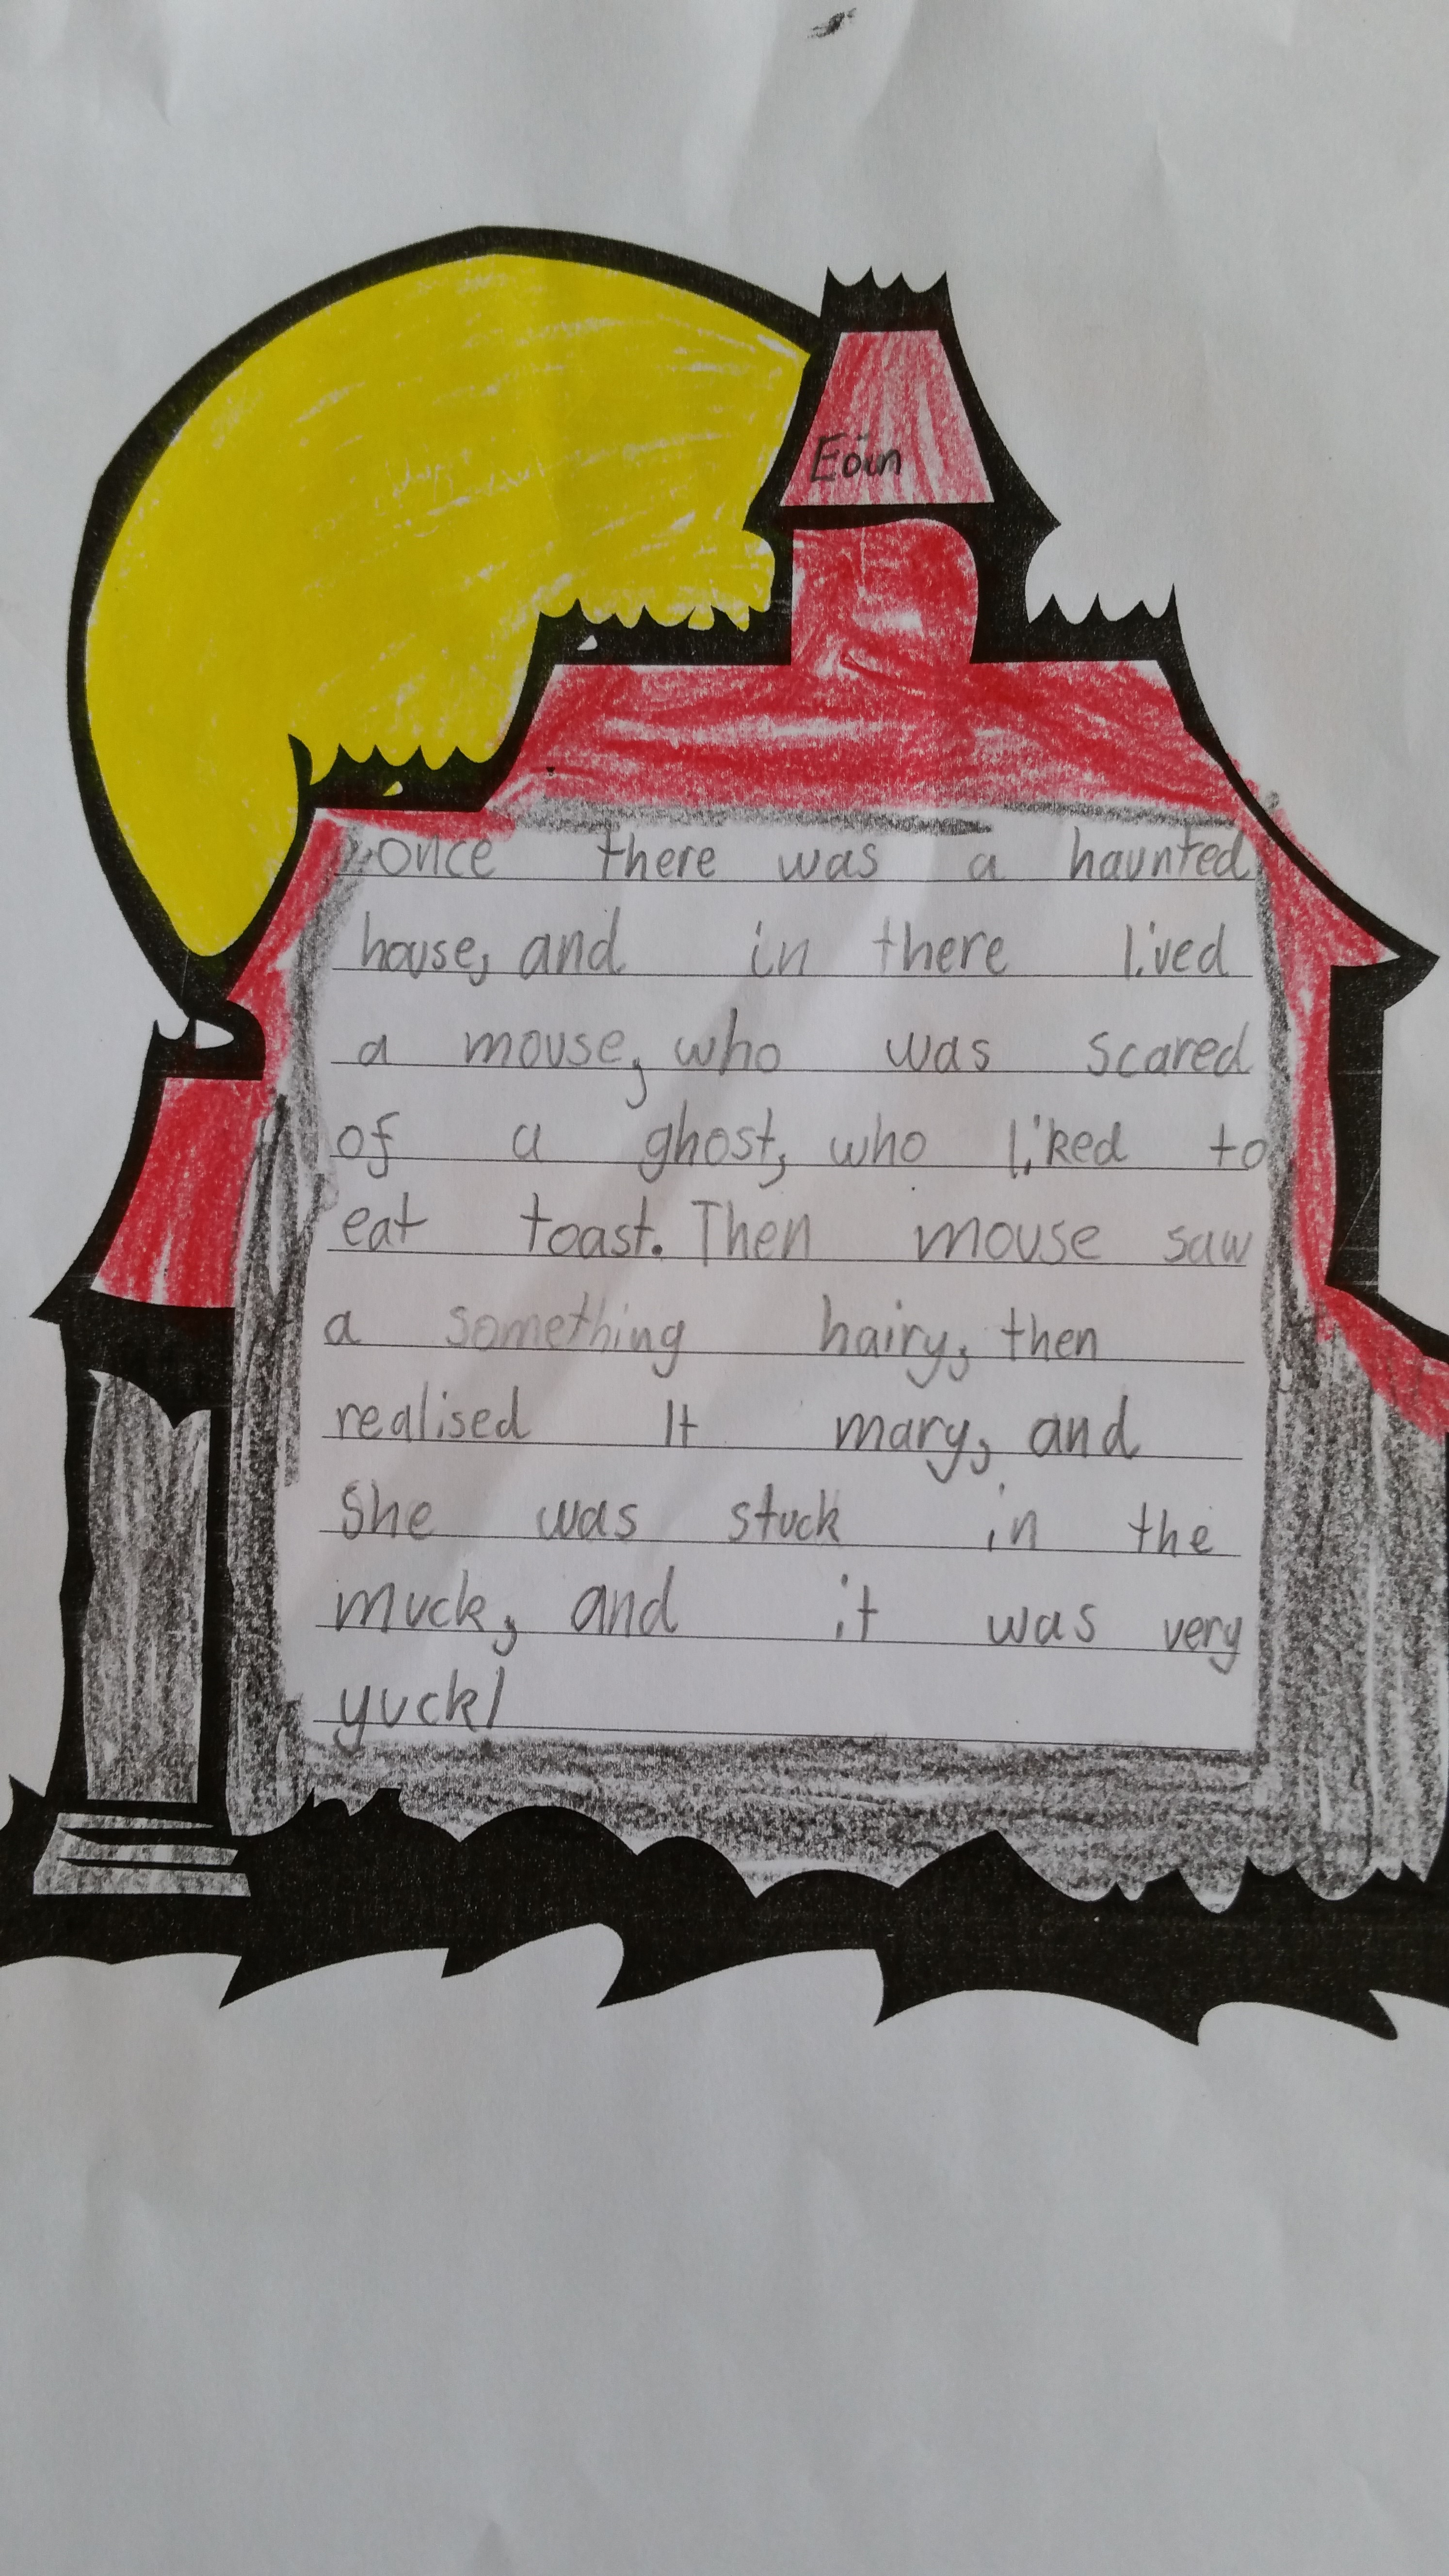 Eoin
once there was a haunted
house, and in there lived
a mouse, who was scared
of a ghost, who liked to
eat toast. Then mouse saw
a something hairy, then
realised It mary, and
She was stuck in the
muck, and it was very
yuck!